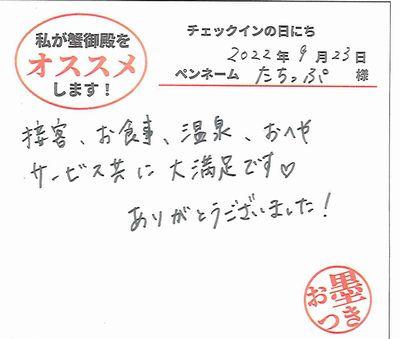 私が蟹御殿を
オススメ
します!
チェックインの日にち
2022年9月23日
ペンネーム たちっぷ 様
接客、お食事、温泉、おへや
サービス共に大満足です♡
ありがとうございました!
お墨つき